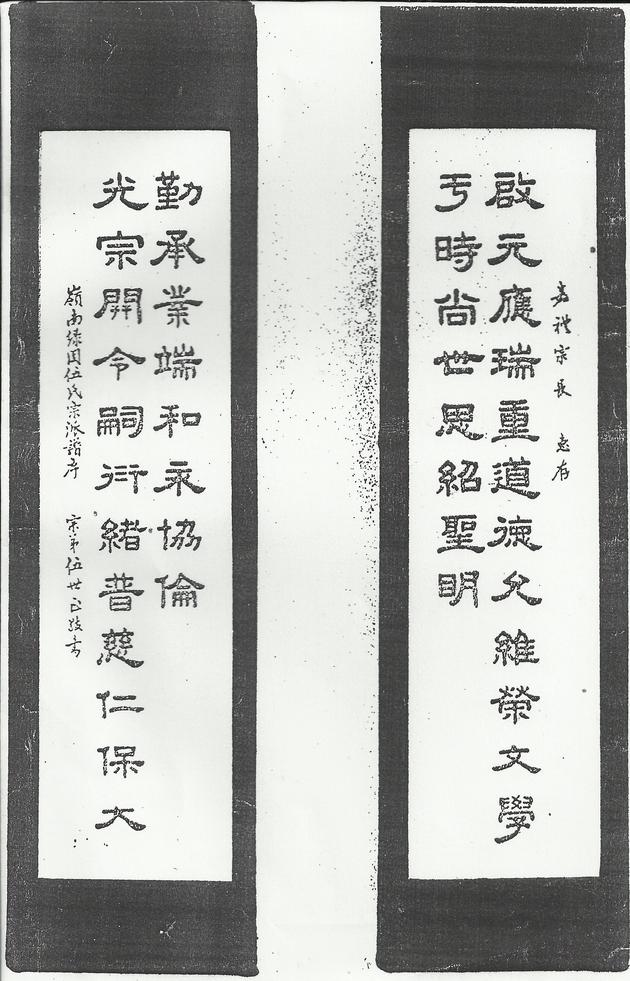 嘉禮宗長 惠存
啟元應瑞重道德允維榮文學
于時尚世思紹聖明
勤承業端和永協倫
光宗開令嗣衍緒普慈仁保大
嶺南綠圍伍氏宗派譜序 宗弟伍世